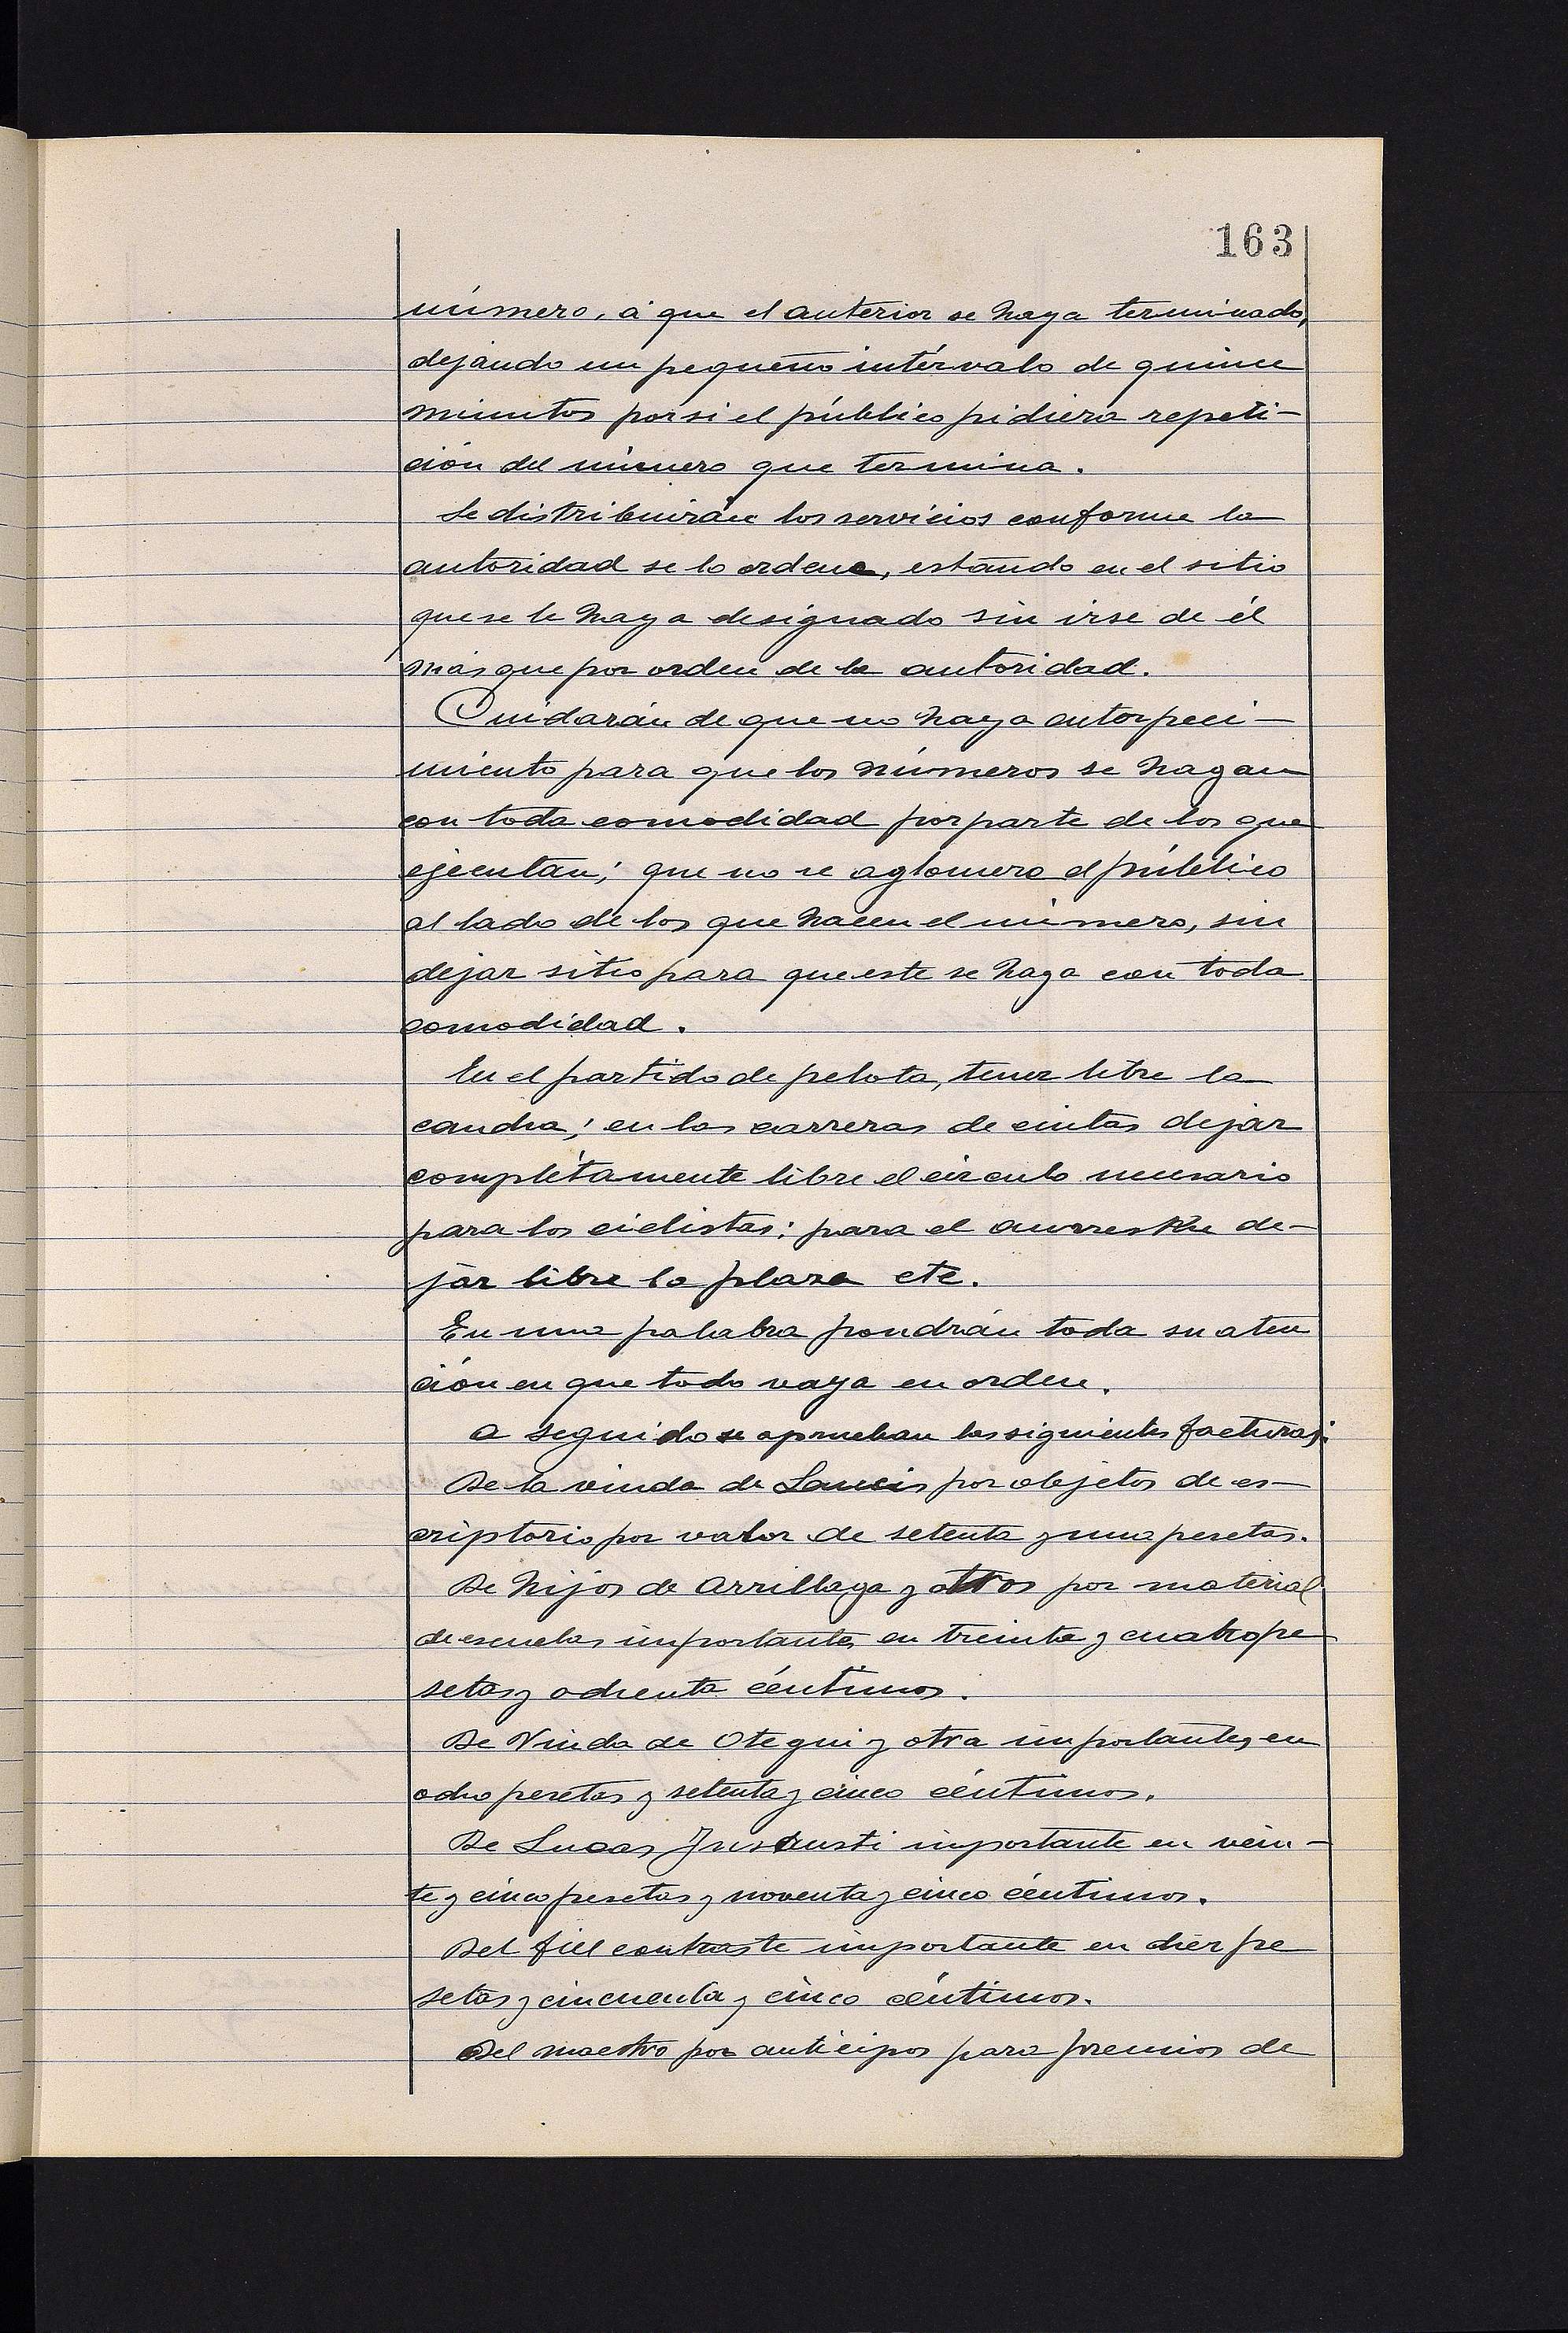 163
número, á que el anterior se haya terminado,
dejando un pequeño intérvalo de quince
minutos por si el público pidiera repeti-
ción del número que termina.
Se distribuirán los servicios conforme la
autoridad se lo ordene, estando en el sitio
que se le haya designado sin irse de él
más que por orden de la autoridad.
Cuidarán de que no haya entorpeci-
miento para que los números se hagan
con toda comodidad por parte de los que
ejecutan; que no se aglomere el público
al lado de los que hacen el número, sin
dejar sitio para que este se haga con toda
comodidad.
En el partido de pelota, tener libre la
cancha; en las carreras de cintas dejar
complétamente libre el círculo necesario
para los ciclistas; para el aurresku de-
jar libre la plaza etc.
En una palabra pondrán toda su aten
ción en que todo vaya en orden.
A seguido se aprueban las siguientes facturas:
De la viuda de por objetos de es-
criptorio por valor de setenta y una pesetas.
De Hijos de Arrillaga y otros por material
de escuelas importantes en treinta y cuatro pe
setas y ochenta céntimos.
De Viuda de Otegui y otra importantes en
ocho pesetas y setenta y cinco céntimos.
De Lucas importante en vein-
te y cinco pesetas y noventa y cinco céntimos.
Del fiel contraste importante en diez pe
setas y cincuenta y cinco céntimos.
Del maestro por anticipos para premios de